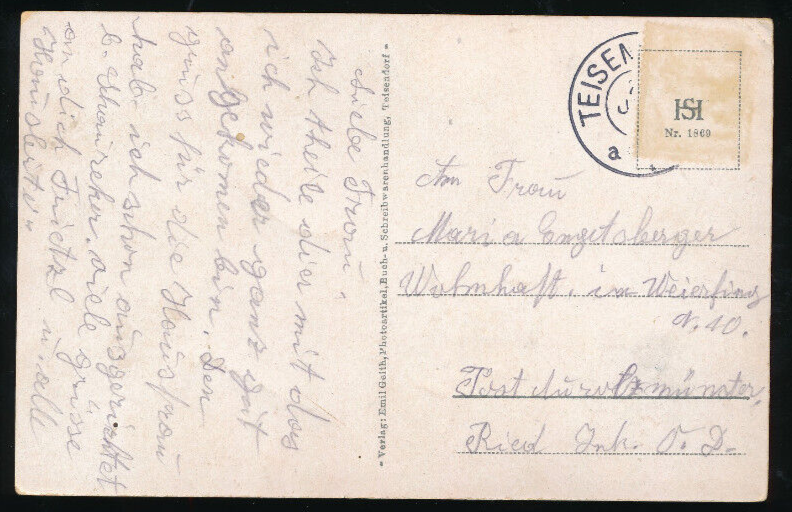 Liebe Frau.
Ich theile dier mit das
ich wieder ganz gut
angekomen bin. den
gruss für die Hausfrau
hab ich schon ausgerichtet
b. viele grüsse
an dich u. alle
Hausleite"
= Verlag: Emil Geith, Photoartikel, Buch- u. Schreibwarenhandlung, Teisendorf =
TEISEN
a
HSH
Nr. 1869
An Frau
Maria Engetsberger
Wohnhaft. in Weierfing
N. 10.
Post
Ried Ink. O. D.